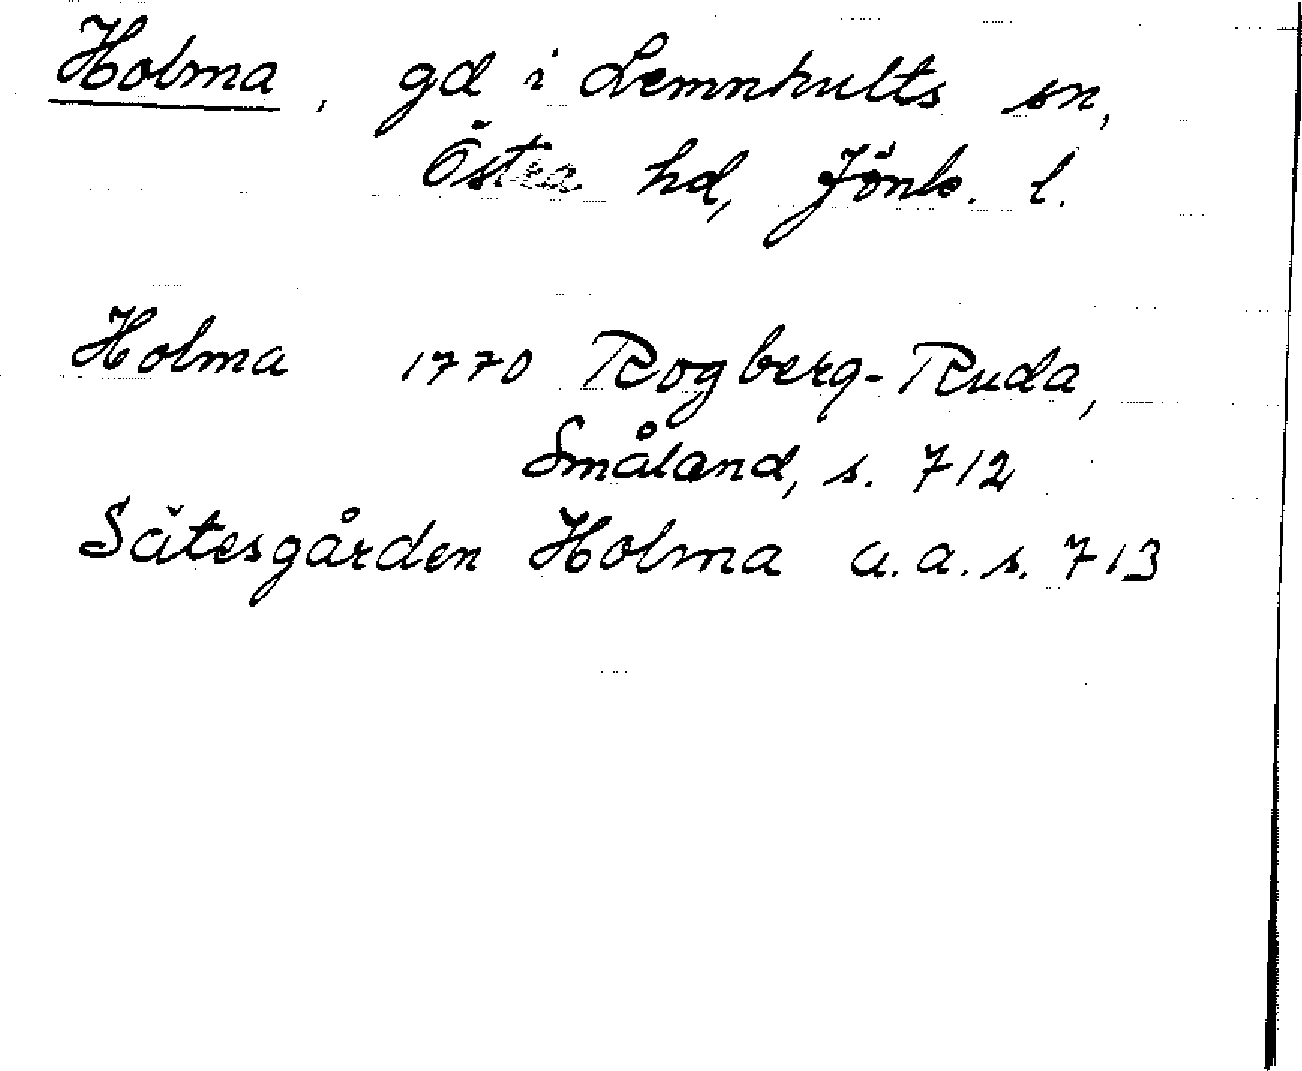 Holma, gd i Lemnhults sn,
Östra hd, Jönk. l.
Holma 1770 Rogberg-Ruda,
Småland, s. 712
Sätesgården Holma a.a. s. 713